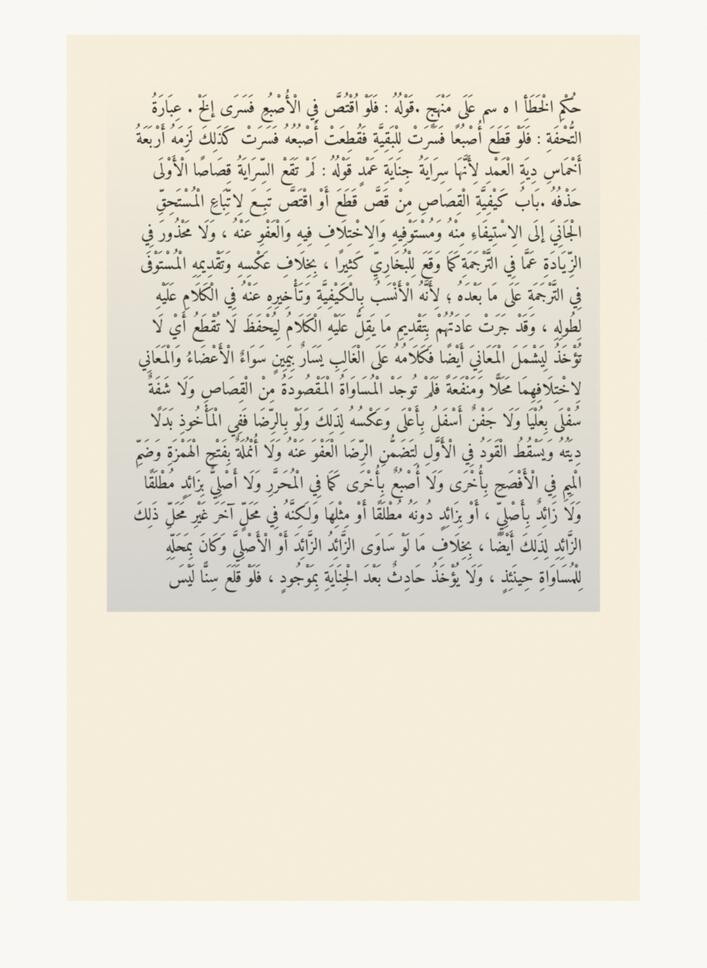 حُكْمِ الْخَطَأِ ا ه سم عَلَى مَنْهَجٍ .قَوْلُهُ : فَلَوْ اُقْتُصَّ فِي الْأُصْبُعِ فَسَرَى إلَخْ . عِبَارَةُ
التُّحْفَةِ : فَلَوْ قَطَعَ أُصْبُعًا فَسَرَتْ لِلْبَقِيَّةِ فَقُطِعَتْ أُصْبُعُهُ فَسَرَتْ كَذَلِكَ لَزِمَهُ أَرْبَعَةُ
أَخْمَاسِ دِيَةِ الْعَمْدِ لِأَنَّهَا سِرَايَةُ جِنَايَةِ عَمْدٍ قَوْلُهُ : لَمْ تَقَعْ السِّرَايَةُ قِصَاصًا الْأَوْلَى
حَذْفُهُ .بَابُ كَيْفِيَّةِ الْقِصَاصِ مِنْ قَصَّ قَطَعَ أَوْ اقْتَصَّ تَبِعَ لِاتِّبَاعِ الْمُسْتَحِقِّ
الْجَانِيَ إلَى الِاسْتِيفَاءِ مِنْهُ وَمُسْتَوْفِيهِ وَالِاخْتِلَافِ فِيهِ وَالْعَفْوِ عَنْهُ ، وَلَا مَحْذُورَ فِي
الزِّيَادَةِ عَمَّا فِي التَّرْجَمَةِ كَمَا وَقَعَ لِلْبُخَارِيِّ كَثِيرًا ، بِخِلَافِ عَكْسِهِ وَتَقْدِيمِهِ الْمُسْتَوْفَى
فِي التَّرْجَمَةِ عَلَى مَا بَعْدَهُ ؛ لِأَنَّهُ الْأَنْسَبُ بِالْكَيْفِيَّةِ وَتَأْخِيرِهِ عَنْهُ فِي الْكَلَامِ عَلَيْهِ
لِطُولِهِ ، وَقَدْ جَرَتْ عَادَتُهُمْ بِتَقْدِيمِ مَا يَقِلُّ عَلَيْهِ الْكَلَامُ لِيُحْفَظَ لَا تُقْطَعُ أَيْ لَا
تُؤْخَذُ لِيَشْمَلَ الْمَعَانِيَ أَيْضًا فَكَلَامُهُ عَلَى الْغَالِبِ يَسَارٌ بِيَمِينٍ سَوَاءٌ الْأَعْضَاءُ وَالْمَعَانِي
لِاخْتِلَافِهِمَا مَحَلًّا وَمَنْفَعَةً فَلَمْ تُوجَدْ الْمُسَاوَاةُ الْمَقْصُودَةُ مِنْ الْقِصَاصِ وَلَا شَفَةٌ
سُفْلَى بِعُلْيَا وَلَا جَفْنٌ أَسْفَلُ بِأَعْلَى وَعَكْسُهُ لِذَلِكَ وَلَوْ بِالرِّضَا فَفِي الْمَأْخُوذِ بَدَلًا
دِيَتُهُ وَيَسْقُطُ الْقَوَدُ فِي الْأَوَّلِ لِتَضَمُّنِ الرِّضَا الْعَفْوَ عَنْهُ وَلَا أُنْمُلَةٌ بِفَتْحِ الْهَمْزَةِ وَضَمِّ
الْمِيمِ فِي الْأَفْصَحِ بِأُخْرَى وَلَا أُصْبُعٌ بِأُخْرَى كَمَا فِي الْمُحَرَّرِ وَلَا أَصْلِيٌّ بِزَائِدٍ مُطْلَقًا
وَلَا زَائِدٌ بِأَصْلِيٍّ ، أَوْ بِزَائِدٍ دُونَهُ مُطْلَقًا أَوْ مِثْلِهَا وَلَكِنَّهُ فِي مَحَلٍّ آخَرَ غَيْرِ مَحَلِّ ذَلِكَ
الزَّائِدِ لِذَلِكَ أَيْضًا ، بِخِلَافِ مَا لَوْ سَاوَى الزَّائِدُ الزَّائِدَ أَوْ الْأَصْلِيَّ وَكَانَ بِمَحَلِّهِ
لِلْمُسَاوَاةِ حِينَئِذٍ ، وَلَا يُؤْخَذُ حَادِثٌ بَعْدَ الْجِنَايَةِ بِمَوْجُودٍ ، فَلَوْ قَلَعَ سِنًّا لَيْسَ